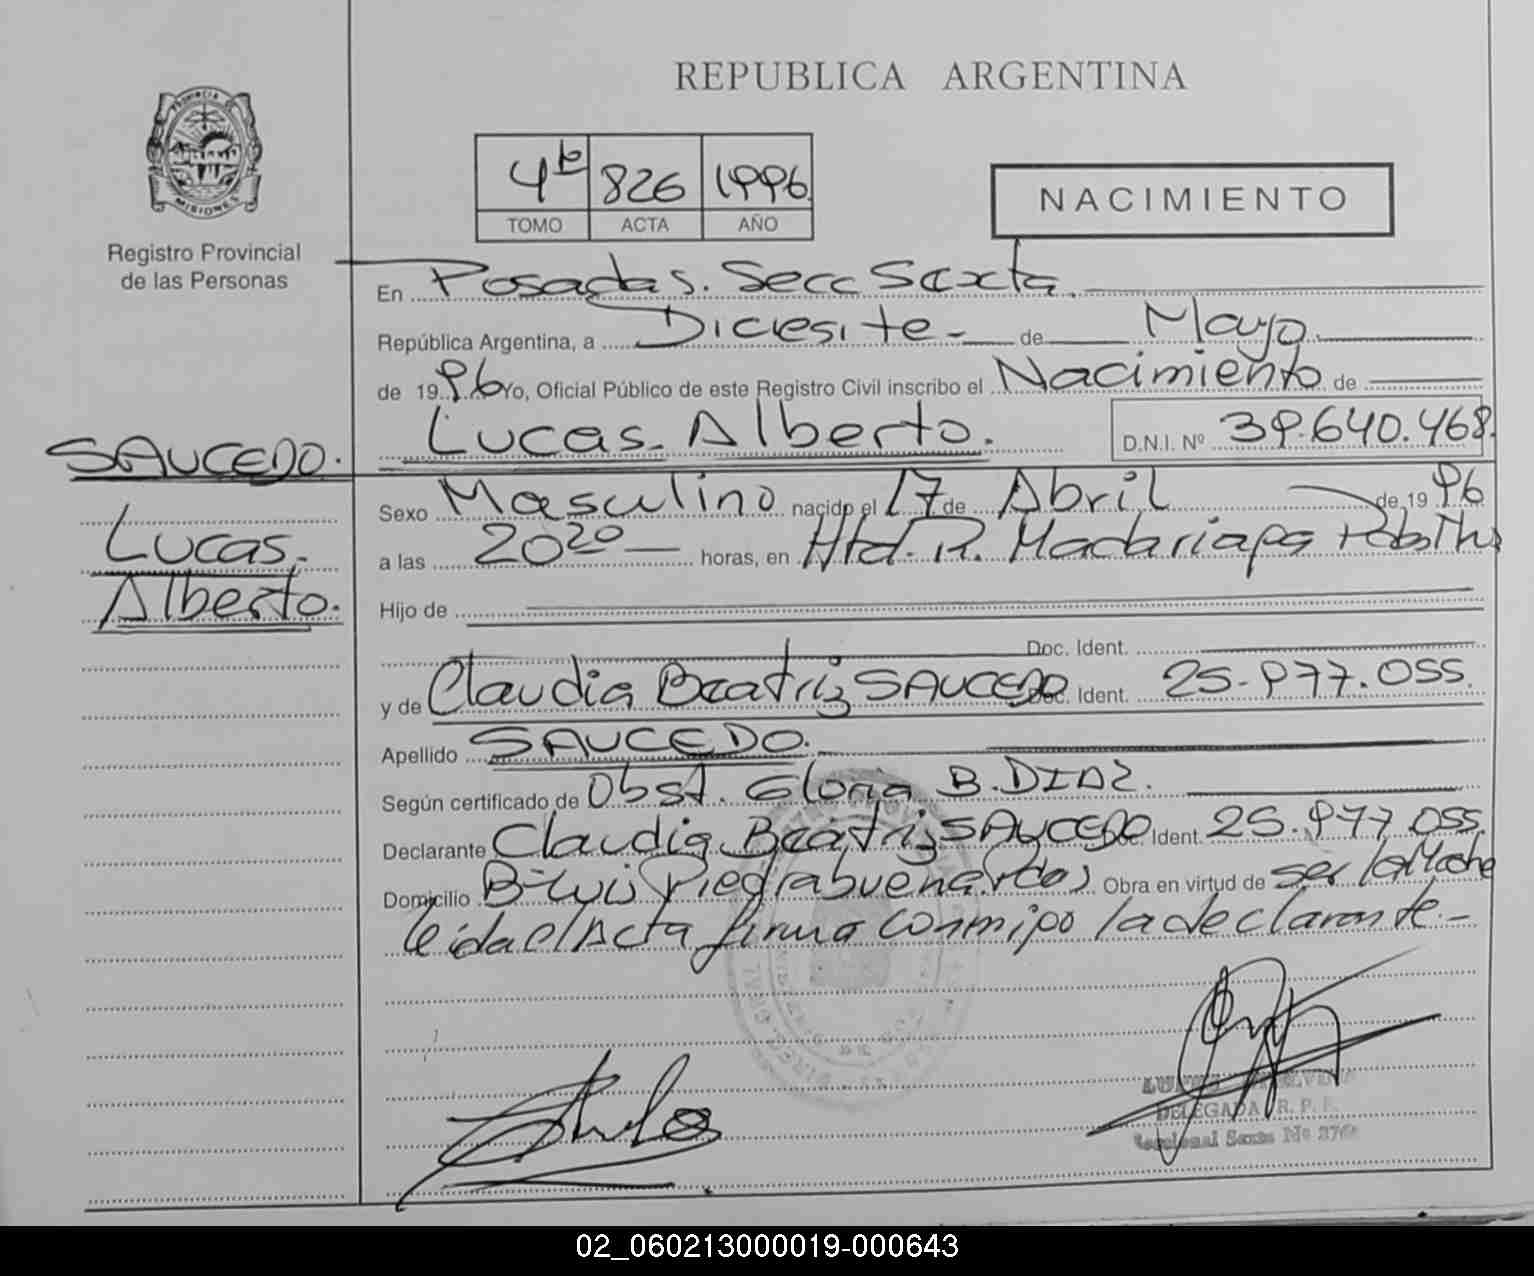 REPUBLICA ARGENTINA
PROVINCIA DE
MISIONES
Registro Provincial
de las Personas
4b 826 1996
TOMO ACTA AÑO
NACIMIENTO
En Posadas. Secc Sexta
República Argentina, a Diciesite - de Mayo
de 1996 Yo, Oficial Público de este Registro Civil inscribo el Nacimiento de
Lucas Alberto. D.N.I. Nº 39.640.468
SAUCEDO.
Lucas
Alberto.
Sexo Masculino nacido el 17 de Abril de 1996
a las 20 20 horas, en Htal. R. Madariaga
Hijo de
Doc. Ident.
y de Claudia Beatriz SAUCEDO Doc. Ident. 25.977.055.
Apellido SAUCEDO.
Según certificado de Obst. Gloria B. DIAZ.
Declarante Claudia Beatriz SAUCEDO Doc. Ident. 25.977.055.
Domicilio Bº Luis Piedrabuena Obra en virtud de ser la Madre
leida el Acta firma conmigo la declarante. -
DELEGADA R. P. P.
Seccional Sexta Nº
02_060213000019-000643